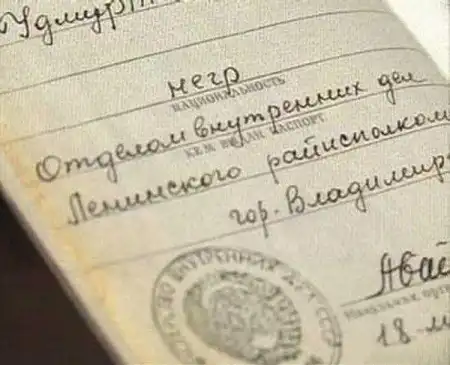 Удмурт
негр
НАЦИОНАЛЬНОСТЬ
Отделом внутренних дел
КЕМ ВЫДАН ПАСПОРТ
Ленинского райисполком
гор. Владимир
18-м
ВНУТРЕННИХ ДЕЛ СССР